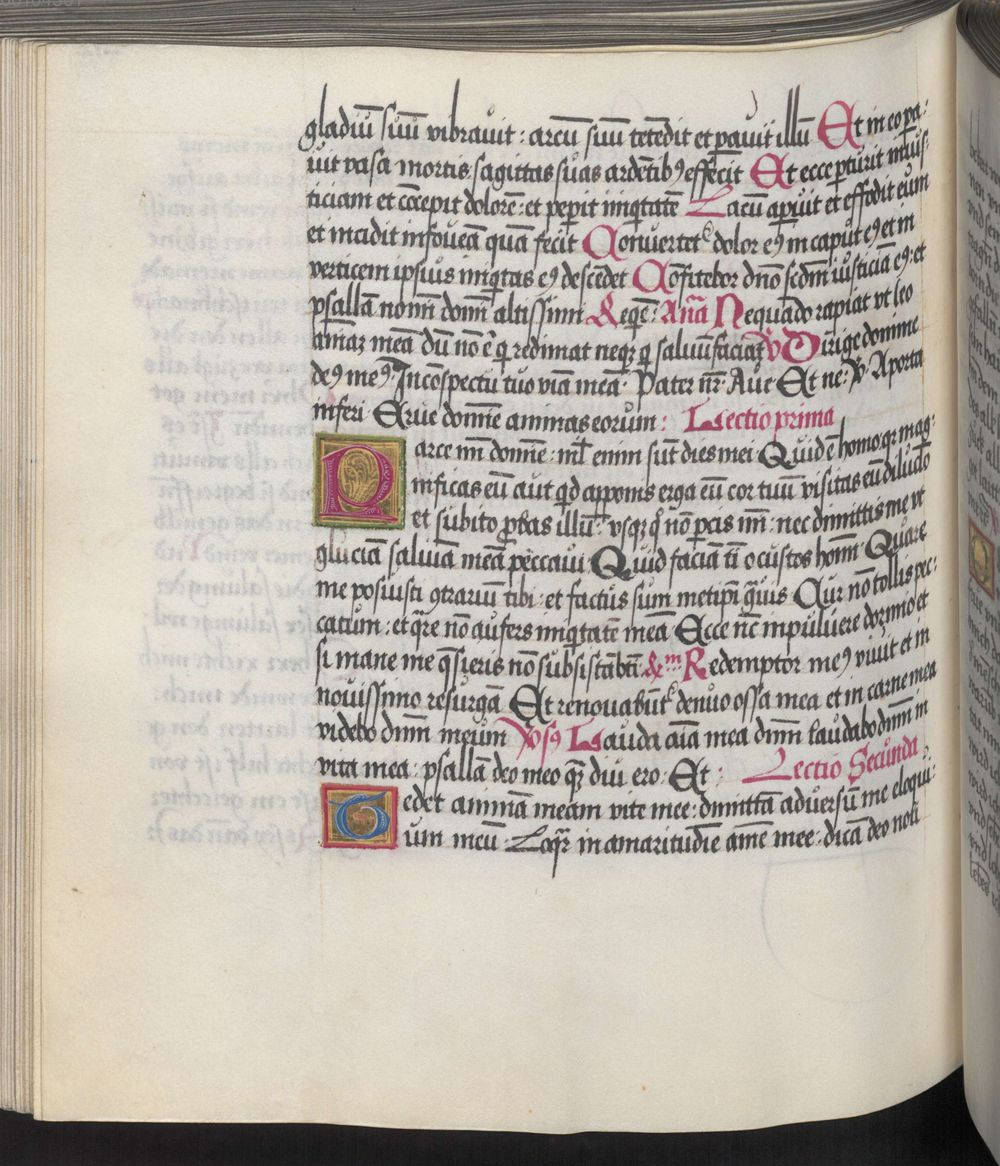 gladiū suū vibrauit : arcū suū tetēdit et ꝑauit illū Et in eo pa:
uit vasa mortis sagittas suas ardētibꝰ effecit Et ecce ꝑturit inius
ticiam et cōcepit dolorē : et peꝑit iniqtatē Lacū aꝑuit et effodit eum
et incidit in foueā quā fecit Conuertet᷑ dolor eꝰ in caput eꝰ et in
verticem ipsius iniqtas eꝰ descēdet Cōfitebor dn̄o scdm̄ iusticiā eꝰ : et
psallā nomī domī altissimi Reqē : An̄a Nequādo rapiat vt leo
aīaz meā dū nō ē q redimat neqz q saluū faciat ꝟ Dirige domine
deꝰ meꝰ In cōspectu tuo viā meā · Pater nr̄ · Aue Et ne · ꝟ · A porta
inferi · Erue domīe animas eorum : Lectio prima
Parce m̄ domīe : nl̄ enim sūt dies mei Quid ē homo qr mag:
nificas eū aut qd apponis erga eū cor tuū visitas eū diluculo
et subito ꝓbas illū : vsqz qͦ nō ꝑcis m̄ : nec dimittis me vt
gluciā saliuā meā peccaui Quid faciā ti o custos homī Quare
me posuisti ꝯtrariū tibi : et factus sum metipi grauis Cur nō tollis pec:
catum : et qre nō aufers iniqtatē meā Ecce nc̄ in puluere dormio et
si mane me qsieris nō subsistā Rm Redemptor meꝰ viuit et in
nouissimo resurgā Et renouabūt᷑ denuo ossa mea et in carne mea
videbo dnm̄ meum Vꝰsꝰ Lauda aīa mea dnm̄ laudabo dnm̄ in
vita mea : psallā deo meo qz diu ero · Et : Lectio Secunda
Tedet animā meam vite mee : dimittā aduersū me eloqui:
um meū : Loqr in amaritudīe aīme mee : dicā deo noli